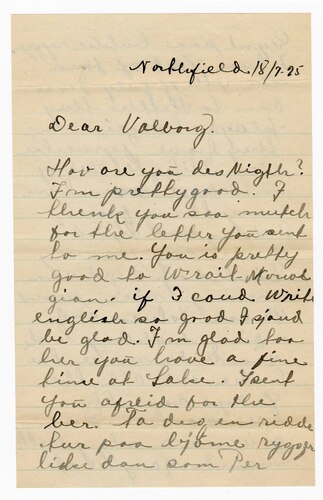 Northfield 18/7-25
Dear Valborg.
Hov are you des Nigth?
I'm prettygood. I
thenk you saa mutch
for the letter you sent
to me. You is pretty
good to Wrait Norve
gian. if I coud Write
english so good I sjoud
be glad. I'm glad too
her you have a fine
time at Salse. I sent
you afreid for the
ber. Ta deg en ridde
tur paa bjørne rygger
lidse dan som Per